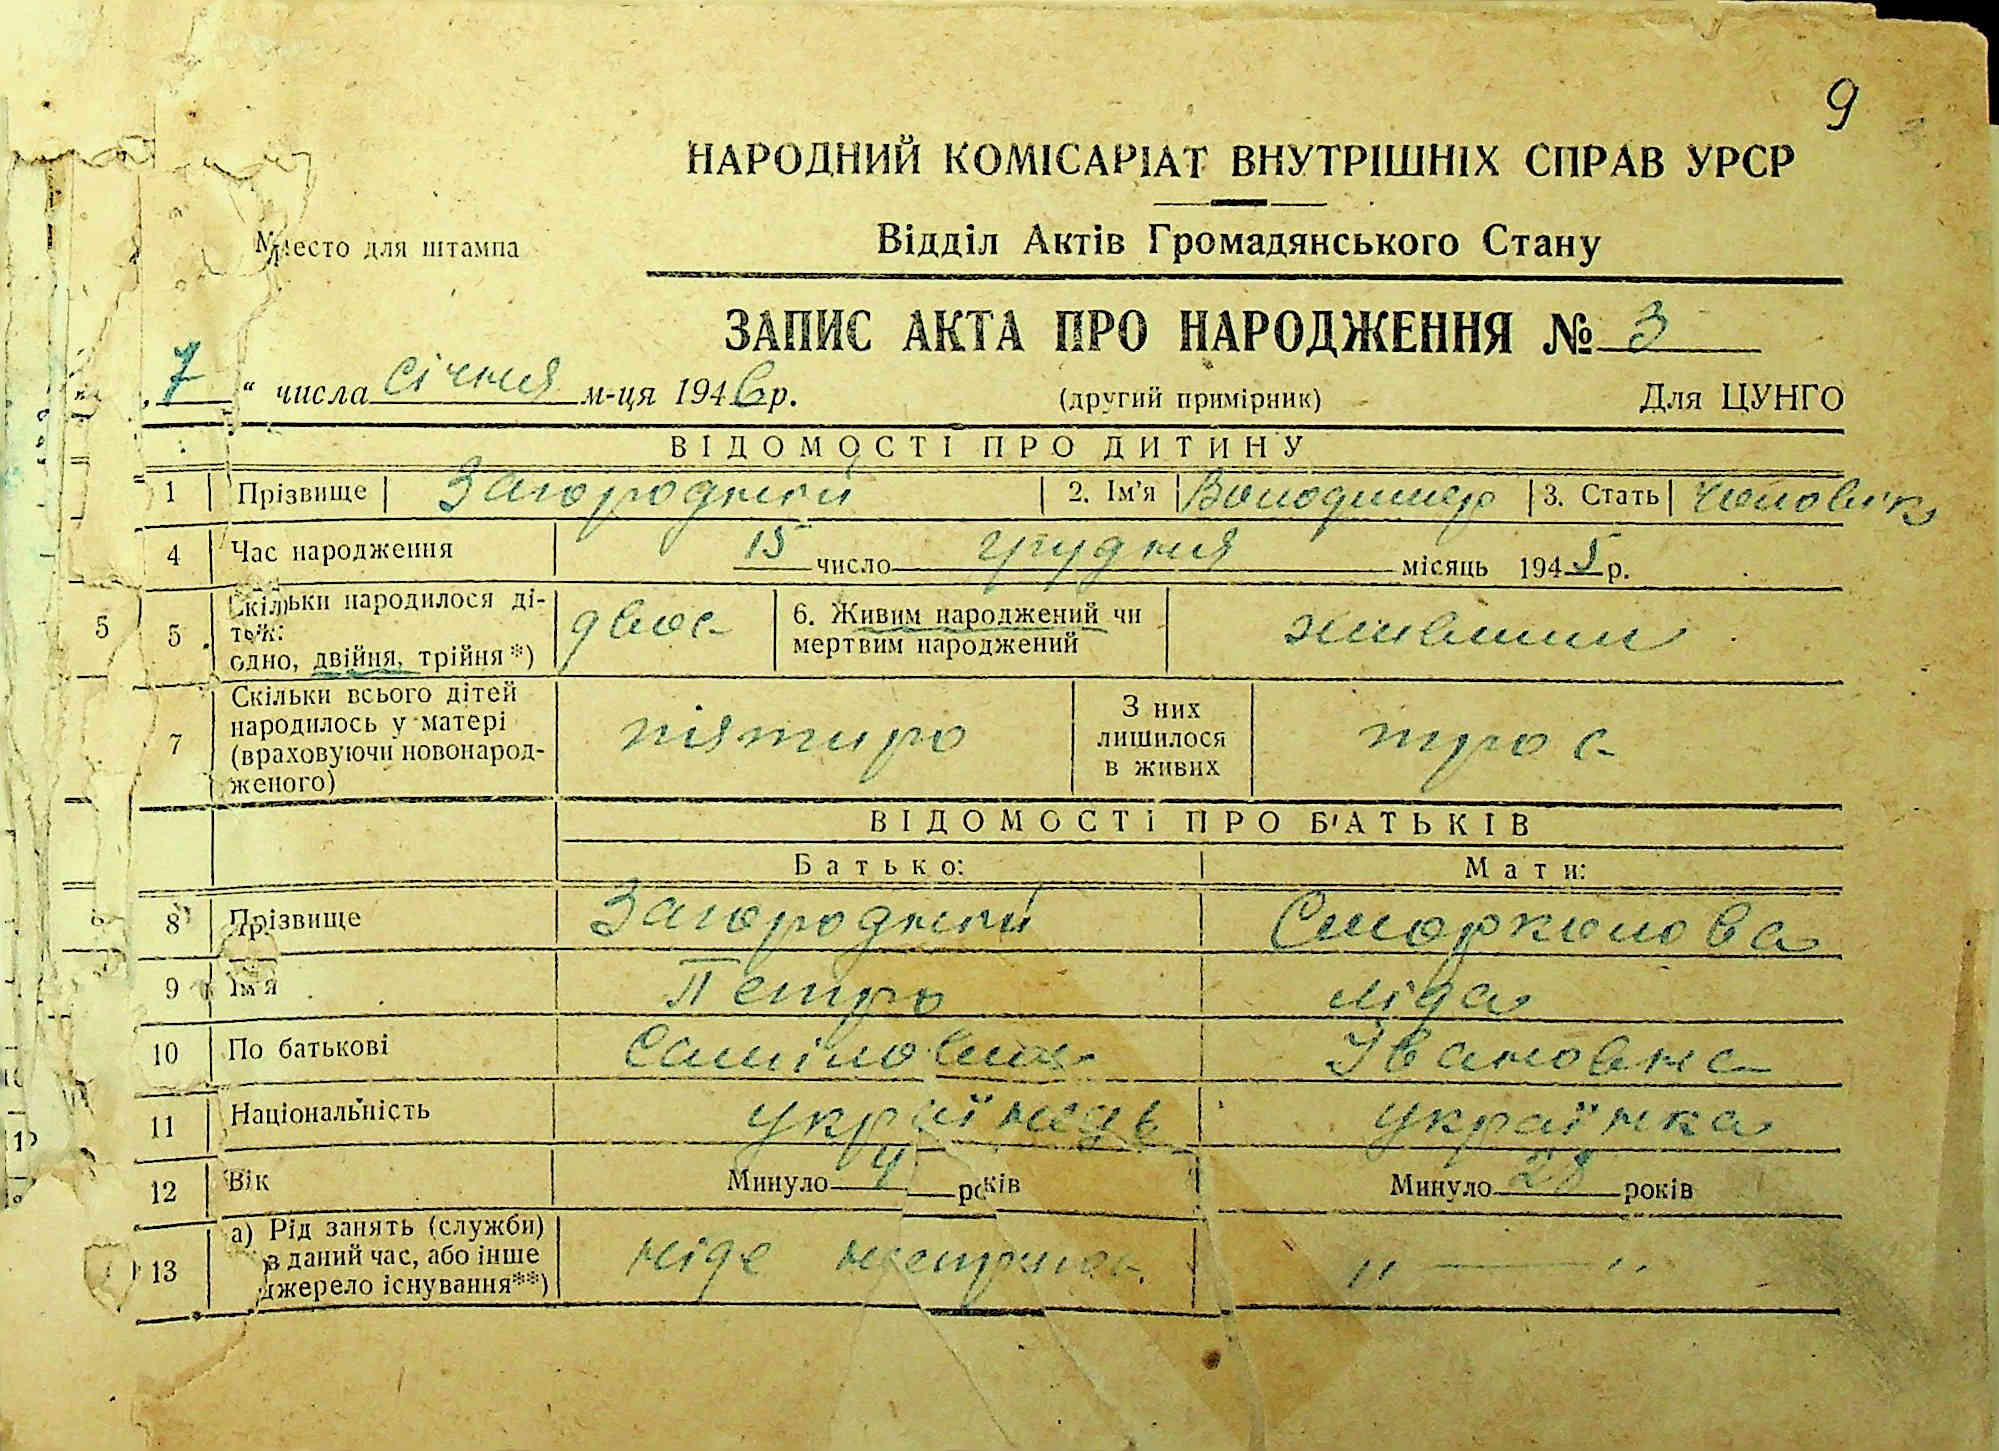 9
НАРОДНИЙ КОМІСАРІАТ ВНУТРІШНІХ СПРАВ УРСР
Место для штампа
Відділ Актів Громадянського Стану
ЗАПИС АКТА ПРО НАРОДЖЕННЯ № 3
„ 7 “ числа січня м-ця 1946 р. (другий примірник) Для ЦУНГО
ВІДОМОСТІ ПРО ДИТИНУ
1 Прізвище Загородний 2. Ім'я Володимер 3. Стать Чоловік
4 Час народження 15 число грудня місяць 1945 р.
5 5 Скільки народилося ді-
ток:
одно, двійня, трійня*) двоє 6. Живим народжений чи
мертвим народжений живими
7 Скільки всього дітей
народилось у матері
(враховуючи новонарод-
женого) пятиро З них
лишилося
в живих троє
ВІДОМОСТІ ПРО БАТЬКІВ
Батько: Мати:
8 Прізвище Загородний
9 Ім'я Петро Ліда
10 По батькові Івановна
11 Національність українець українка
12 Вік Минуло років Минуло 28 років
13 а) Рід занять (служби)
в даний час, або інше
джерело існування**) ніде " — "